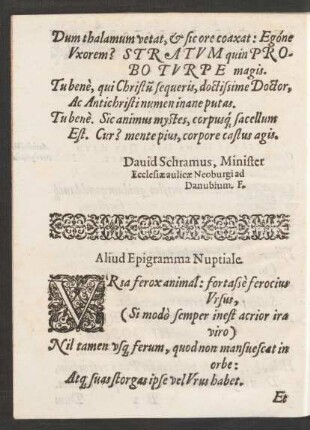 Dum thalamum vetat, & sic ore coaxat: Egóne
Vxorem? STRATVM quin PRO-
BO TVRPE magis.
Tu benè, qui Christũ sequeris, doctissime Doctor,
Ac Antichristi numen inane putas.
Tu benè. Sic animus mystes, corpusq; sacellum
Est. Cur? mente pius, corpore castus agis.
Dauid Schramus, Minister
Ecclesiæ aulicæ Neoburgi ad
Danubium. F.
Aliud Epigramma Nuptiale.
VRsa ferox animal: fortassè ferocius
Vrsus,
(Si modò semper inest acrior ira
viro)
Nil tamen vsq; ferum, quod non mansuescat in
orbe:
Atq; suas storgas ipse vel Vrsus habet.
Et